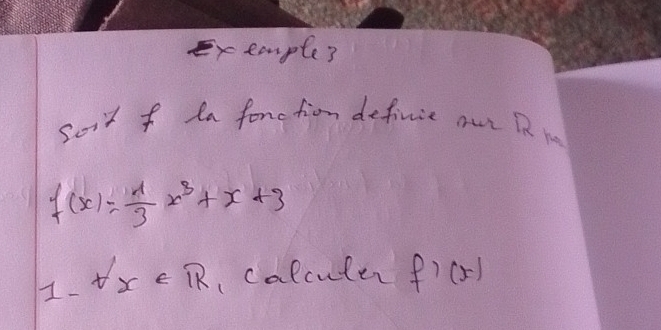 Exemple 3
Soit f la fonction definie sur ℝ
f(x) = 1/3 x³ + x + 3
1- ∀x ∈ ℝ, calculer f'(x)